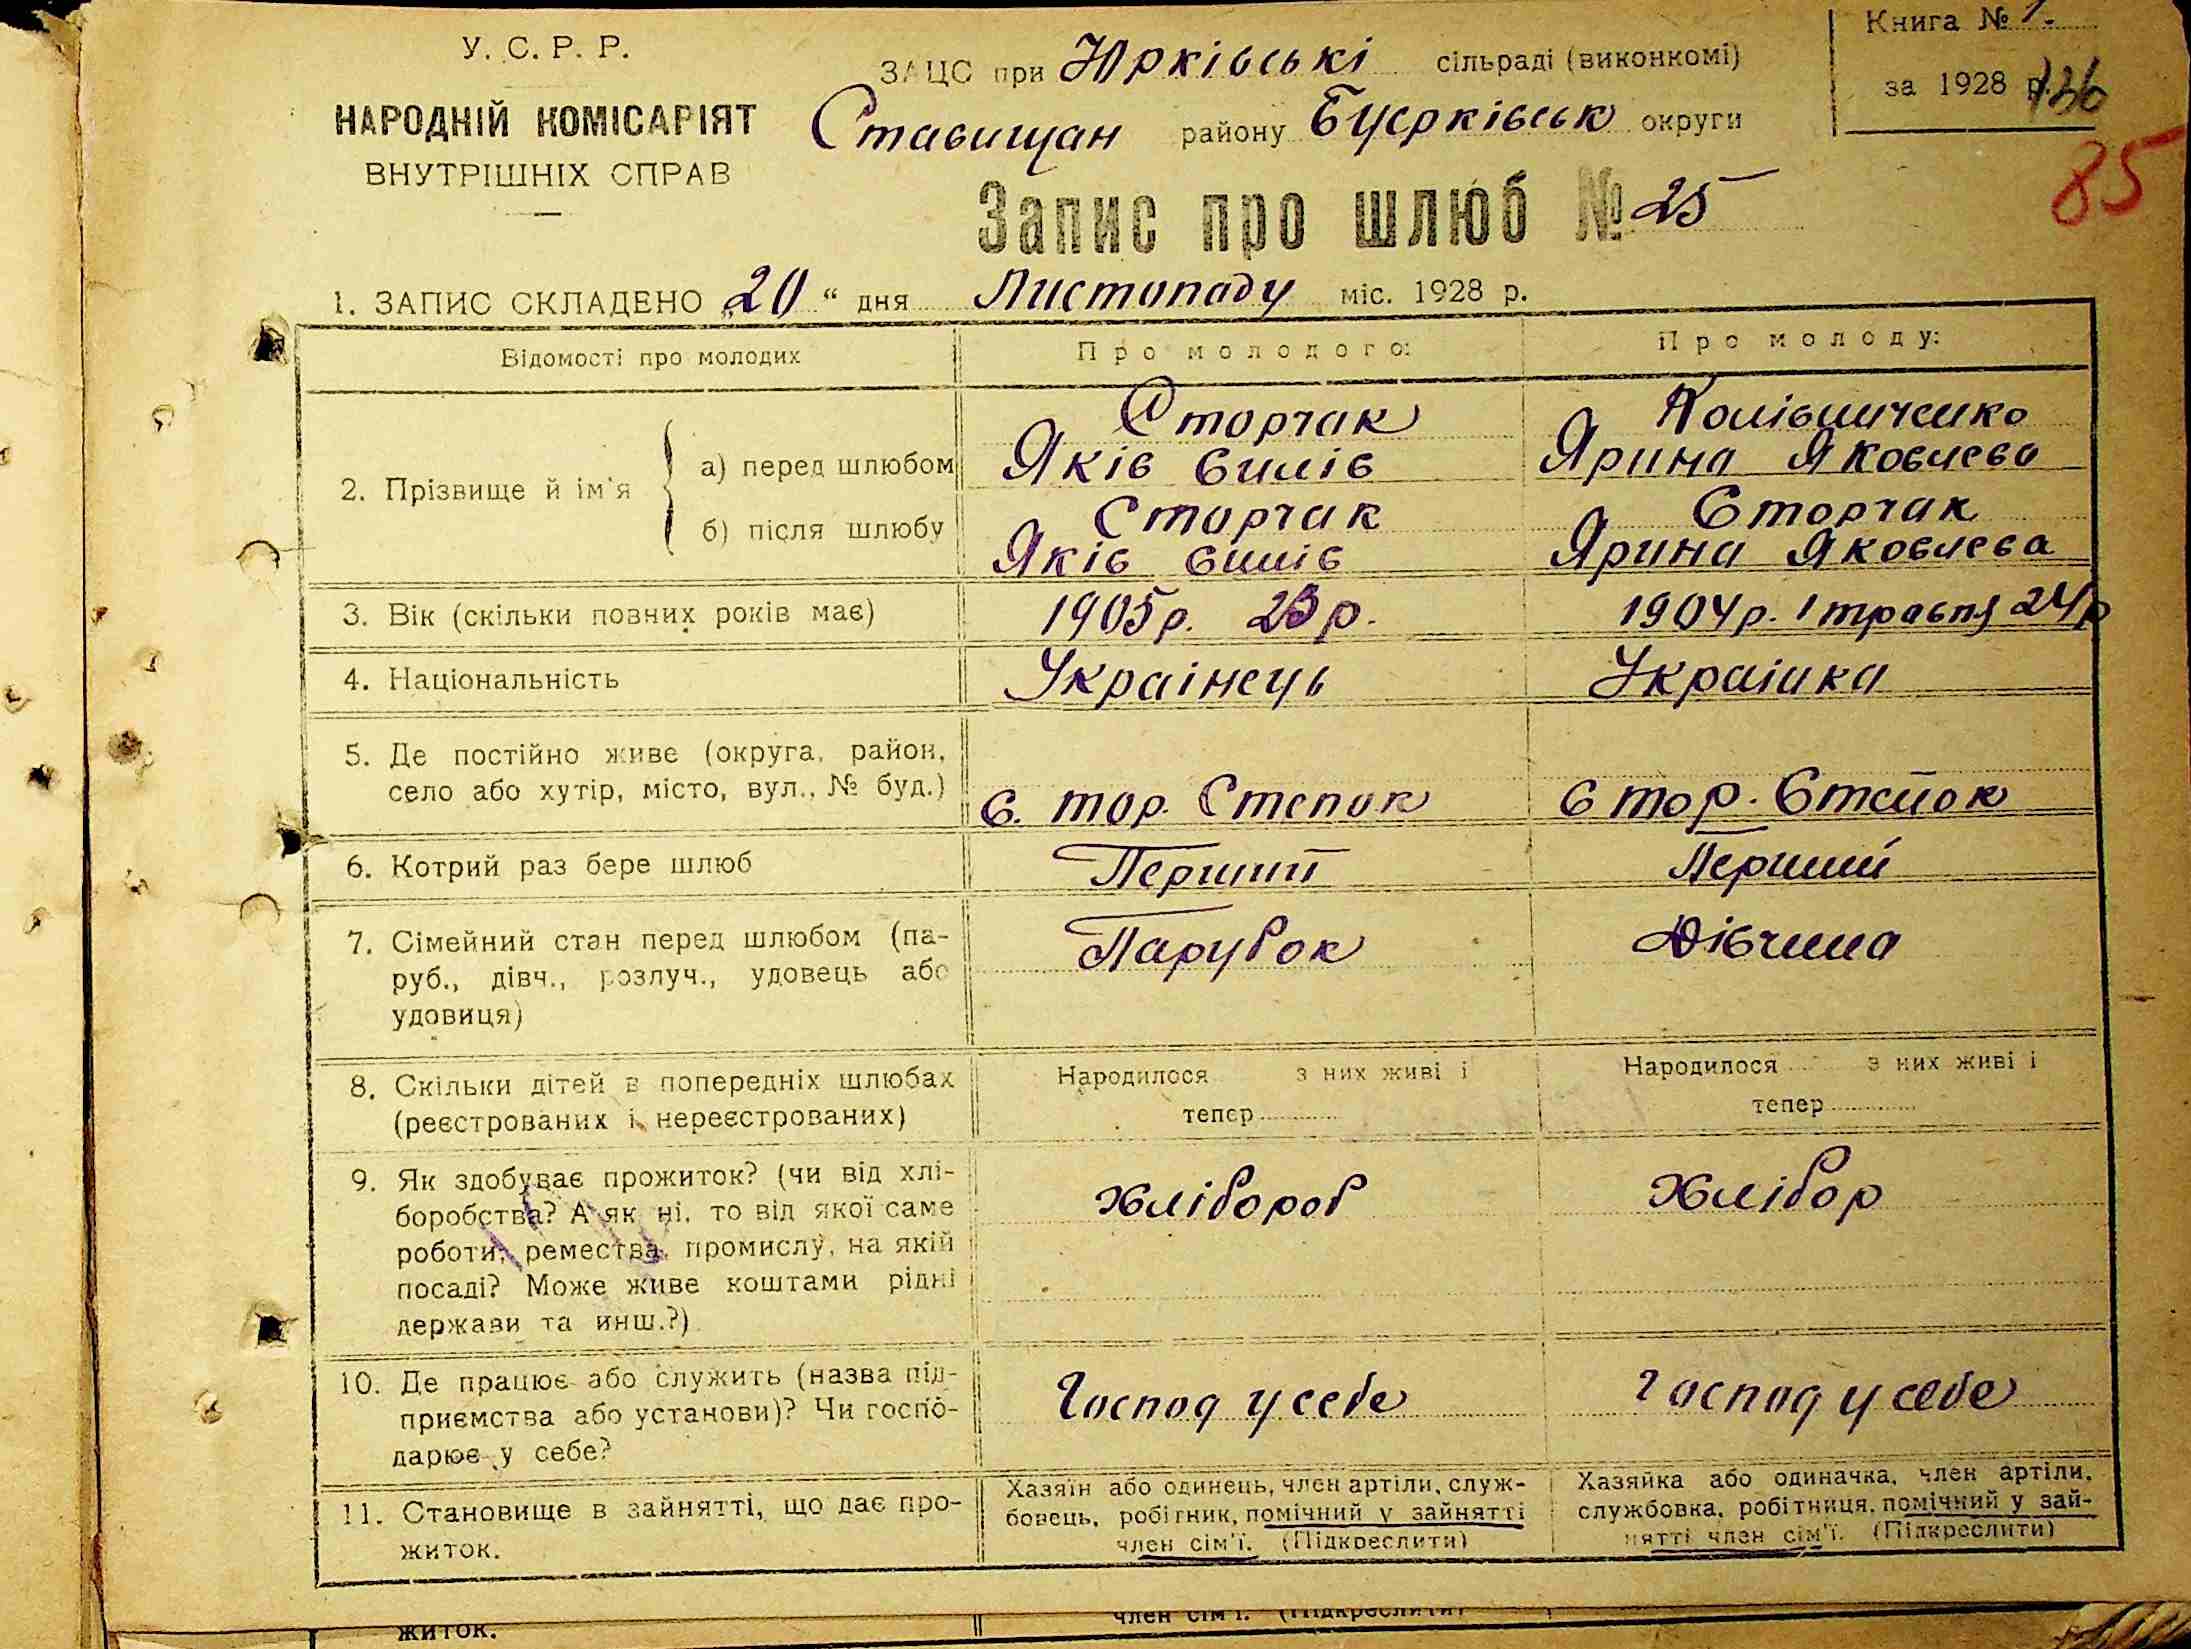 У. С. Р. Р.
НАРОДНІЙ КОМІСАРІЯТ
ВНУТРІШНІХ СПРАВ
ЗАЦС при Юрківські сільраді (виконкомі)
Ставищан району Бцерківськ округи
Книга № 1.
за 1928 р. 136
85
Запис про шлюб № 25
1. ЗАПИС СКЛАДЕНО „20“ дня Листопаду міс. 1928 р.
Відомості про молодих
Про молодого:
Про молоду:
2. Прізвище й ім'я
а) перед шлюбом
Сторчак
Яків
Ярина Яковлева
б) після шлюбу
Сторчак
Яків
Сторчак
Ярина Яковлева
3. Вік (скільки повних років має)
1905р. 23р.
1904р. 1 травня 24р
4. Національність
Українець
Українка
5. Де постійно живе (округа, район,
село або хутір, місто, вул., № буд.)
с. тор. Степок
с тор. Степок
6. Котрий раз бере шлюб
Перший
Перший
7. Сімейний стан перед шлюбом (па-
руб., дівч., розлуч., удовець або
удовиця)
Парубок
Дівчина
8. Скільки дітей в попередніх шлюбах
(реєстрованих і нереєстрованих)
Народилося з них живі і
тепер
Народилося з них живі і
тепер
9. Як здобуває прожиток? (чи від хлі-
боробства? А як ні, то від якої саме
роботи, ремества, промислу, на якій
посаді? Може живе коштами рідні
держави та инш.?)
Хлібороб
Хлібор
10. Де працює або служить (назва під-
приємства або установи)? Чи госпо-
дарює у себе?
Господ у себе
Господ у себе
11. Становище в зайнятті, що дає про-
житок.
Хазяїн або одинець, член артіли, служ-
бовець, робітник, помічний у зайнятті
член сім'ї. (Підкреслити)
Хазяйка або одиначка, член артіли,
службовка, робітниця, помічний у зай-
нятті член сім'ї. (Підкреслити)
житок.
член сім'ї. (Підкреслити)